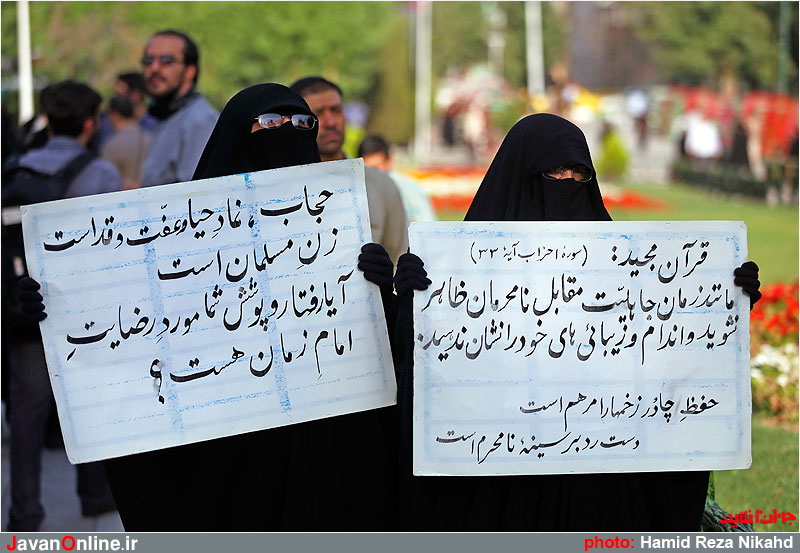 حجاب، نماد حیا و عفّت و قداست
زنِ مسلمان است
آیا رفتار و پوشش شما موردِ رضایتِ
امامِ زمان هست؟
قرآن مجید: (سورهٔ احزاب آیهٔ ۳۳)
مانند زمان جاهلیّت مقابل نامحرمان ظاهر
نشوید و اندام و زیبائی های خود را نشان ندهید.
حفظِ چادر زخمها را مرهم است
دست رد بر سینهٔ نامحرم است
جوان آنلاین
JavanOnline.ir
photo: Hamid Reza Nikahd